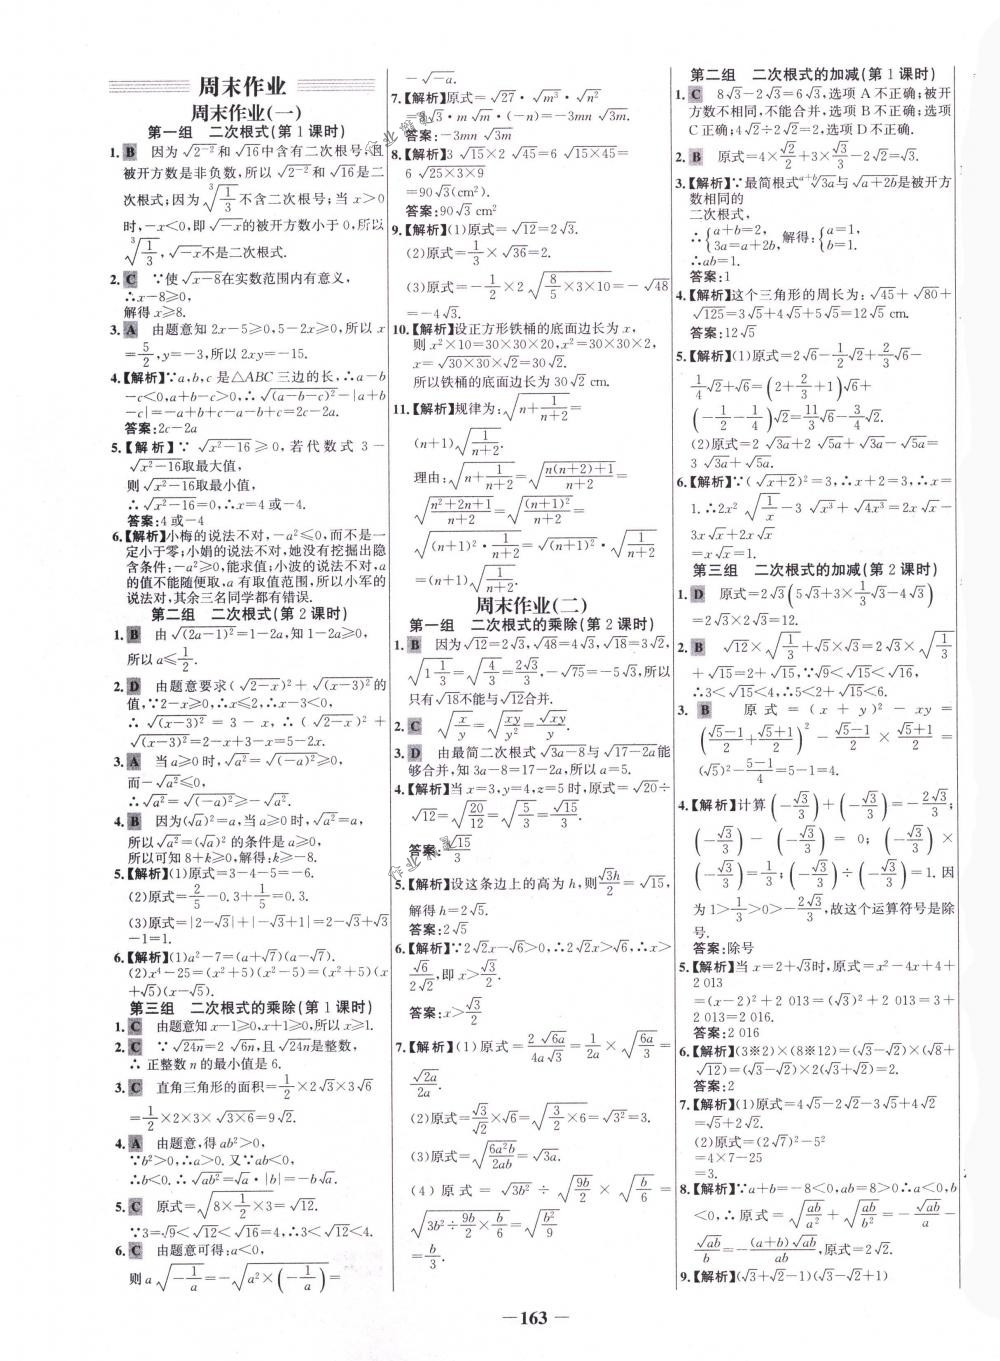 周末作业
周末作业(一)
第一组 二次根式(第1课时)
1. B 因为√(2⁻²)和√16中含有二次根号,且
被开方数是非负数,所以√(2⁻²)和√16是二
次根式;因为∛(1/3)不含二次根号;当x>0
时,-x<0,即√(-x)的被开方数小于0,所以
∛(1/3),√(-x)不是二次根式.
2. C ∵使√(x-8)在实数范围内有意义,
∴x-8≥0,
解得x≥8.
3. A 由题意知2x-5≥0,5-2x≥0,所以x
=5/2,y=-3,所以2xy=-15.
4.【解析】∵a,b,c是△ABC三边的长,∴a-b
-c<0,a+b-c>0,∴√((a-b-c)²)-|a+b
-c|=-a+b+c-a-b+c=2c-2a.
答案:2c-2a
5.【解析】∵√(x²-16)≥0,若代数式3-
√(x²-16)取最大值,
则√(x²-16)取最小值,
∴√(x²-16)=0,∴x=4或-4.
答案:4或-4
6.【解析】小梅的说法不对,-a²≤0,而不是一
定小于零;小娟的说法不对,她没有挖掘出隐
含条件:-a²≥0,能求值;小波的说法不对,a
的值不能随便取,a有取值范围,所以小军的
说法对,其余三名同学都有错误.
第二组 二次根式(第2课时)
1. B 由√((2a-1)²)=1-2a,知1-2a≥0,
所以a≤1/2.
2. D 由题意要求(√(2-x))²+√((x-3)²)的
值,∵2-x≥0,∴x≤2,∴x-3<0,
∴√((x-3)²)=3-x,∴(√(2-x))²+
√((x-3)²)=2-x+3-x=5-2x.
3. A 当a≥0时,√(a²)=√((-a)²)≥0,
而-√(a²)≤0,
∴√(a²)=√((-a)²)≥-√(a²).
4. B 因为(√a)²=a,当a≥0时,√(a²)=a,
所以√(a²)=(√a)²的条件是a≥0;
所以可知8+k≥0,解得:k≥-8.
5.【解析】(1)原式=3-4-5=-6.
(2)原式=2/5-0.3+1/5=0.3.
(3)原式=|2-√3|+|-√3+1|=2-√3+√3
-1=1.
6.【解析】(1)a²-7=(a+√7)(a-√7).
(2)x⁴-25=(x²+5)(x²-5)=(x²+5)(x
+√5)(x-√5).
第三组 二次根式的乘除(第1课时)
1. C 由题意知x-1≥0,x+1≥0,所以x≥1.
2. C ∵√(24n)=2√(6n),且√(24n)是整数,
∴正整数n的最小值是6.
3. C 直角三角形的面积=1/2×2√3×3√6
=1/2×2×3×√(3×6)=9√2.
4. A 由题意,得ab²>0,
∵b²>0,∴a>0.又∵ab<0,
∴b<0.∴√(ab²)=√a·|b|=-b√a.
5. C 原式=√(8×1/2×3)=√12.
∵3=√9<√12<√16=4,∴3<√12<4.
6. C 由题意可得:a<0,
则a√(-1/a)=-√(a²×(-1/a))=
-√(-a).
7.【解析】原式=√27·√(m³)·√(n²)
=3√3·m√m·(-n)=-3mn√(3m).
答案:-3mn√(3m)
8.【解析】3√15×2√45=6√(15×45)=
6√(25×3×9)
=90√3(cm²).
答案:90√3 cm²
9.【解析】(1)原式=√12=2√3.
(2)原式=1/3×√36=2.
(3)原式=-1/2×2√(8/5×3×10)=-√48
=-4√3.
10.【解析】设正方形铁桶的底面边长为x,
则x²×10=30×30×20,x²=30×30×2,
x=√(30×30)×√2=30√2.
所以铁桶的底面边长为30√2 cm.
11.【解析】规律为:√(n+1/(n+2))=
(n+1)√(1/(n+2)).
理由:√(n+1/(n+2))=√((n(n+2)+1)/(n+2))=
√((n²+2n+1)/(n+2))=√((n+1)²/(n+2))=
√((n+1)²·1/(n+2))=√((n+1)²)·√(1/(n+2))
=(n+1)√(1/(n+2)).
周末作业(二)
第一组 二次根式的乘除(第2课时)
1. B 因为√12=2√3,√48=4√3,√18=3√2,
√(1 1/3)=√(4/3)=2√3/3,-√75=-5√3,所以
只有√18不能与√12合并.
2. C √(x/y)=√(xy/y²)=√(xy)/y.
3. D 由最简二次根式√(3a-8)与√(17-2a)能
够合并,知3a-8=17-2a,所以a=5.
4.【解析】当x=3,y=4,z=5时,原式=√20÷
√12=√(20/12)=√(5/3)=√15/3.
答案:√15/3
5.【解析】设这条边上的高为h,则√3h/2=√15,
解得h=2√5.
答案:2√5
6.【解析】∵2√2x-√6>0,∴2√2x>√6,∴x>
√6/(2√2),即x>√3/2.
答案:x>√3/2
7.【解析】(1)原式=2√(6a)/(4a√3)=1/(2a)×√(6a/3)=
√(2a)/(2a).
(2)原式=√3/√2×√6=√(3/2×6)=√(3²)=3.
(3)原式=√(6a²b/(2ab))=√(3a).
(4)原式=√(3b²)÷√(9b/2)×√(b/6)=
√(3b²÷9b/2×b/6)=√(b²/9)
=b/3.
第二组 二次根式的加减(第1课时)
1. C 8√3-2√3=6√3,选项A不正确;被开
方数不相同,不能合并,选项B不正确;选项
C正确;4√2÷2√2=2,选项D不正确.
2. B 原式=4×√2/2+3×√3/3-2√2=√3.
3.【解析】∵最简根式ᵃ⁺ᵇ√(3a)与√(a+2b)是被开方
数相同的
二次根式,
∴{a+b=2, 3a=a+2b, 解得:{a=1, b=1.
∴ab=1.
答案:1
4.【解析】这个三角形的周长为:√45+√80+
√125=3√5+4√5+5√5=12√5 cm.
答案:12√5
5.【解析】(1)原式=2√6-1/2√2+2/3√6-
1/4√2+√6=(2+2/3+1)√6+
(-1/2-1/4)√2=11/3√6-3/4√2.
(2)原式=2√(3a)+2√(5a)+√(3a)-√(5a)=
3√(3a)+√(5a).
6.【解析】∵(√(x+2))²=3,∴x+2=3,∴x=
1.∴2x²√(1/x)-3√(x³)+√(4x³)=2x√x-
3x√x+2x√x
=x√x=1.
第三组 二次根式的加减(第2课时)
1. D 原式=2√3(5√3+3×1/3√3-4√3)
=2√3×2√3=12.
2. B √12×√(1/3)+√5×√3=2√3×√(1/3)
+√15=2+√15;∵√9<√15<√16,
∴3<√15<4,∴5<2+√15<6.
3. B 原式=(x+y)²-xy=
((√5-1)/2+(√5+1)/2)²-(√5-1)/2×(√5+1)/2=
(√5)²-(5-1)/4=5-1=4.
4.【解析】计算(-√3/3)+(-√3/3)=-2√3/3;
(-√3/3)-(-√3/3)=0;(-√3/3)×
(-√3/3)=1/3;(-√3/3)÷(-√3/3)=1.因
为1>1/3>0>-2√3/3,故这个运算符号是除
号.
答案:除号
5.【解析】当x=2+√3时,原式=x²-4x+4+
2 013
=(x-2)²+2 013=(√3)²+2 013=3+
2 013=2 016.
答案:2 016
6.【解析】(3※2)×(8※12)=(√3-√2)×(√8+
√12)=(√3-√2)×2(√3+√2)=2.
答案:2
7.【解析】(1)原式=4√5-2√2-3√5+4√2
=√5+2√2.
(2)原式=(2√7)²-5²
=4×7-25
=3.
8.【解析】∵a+b=-8<0,ab=8>0∴a<0,b
<0,∴原式=√(ab/a²)+√(ab/b²)=-√(ab)/a-
√(ab)/b=-(a+b)√(ab)/ab,原式=2√2.
9.【解析】(√3+√2-1)(√3-√2+1)
— 163 —